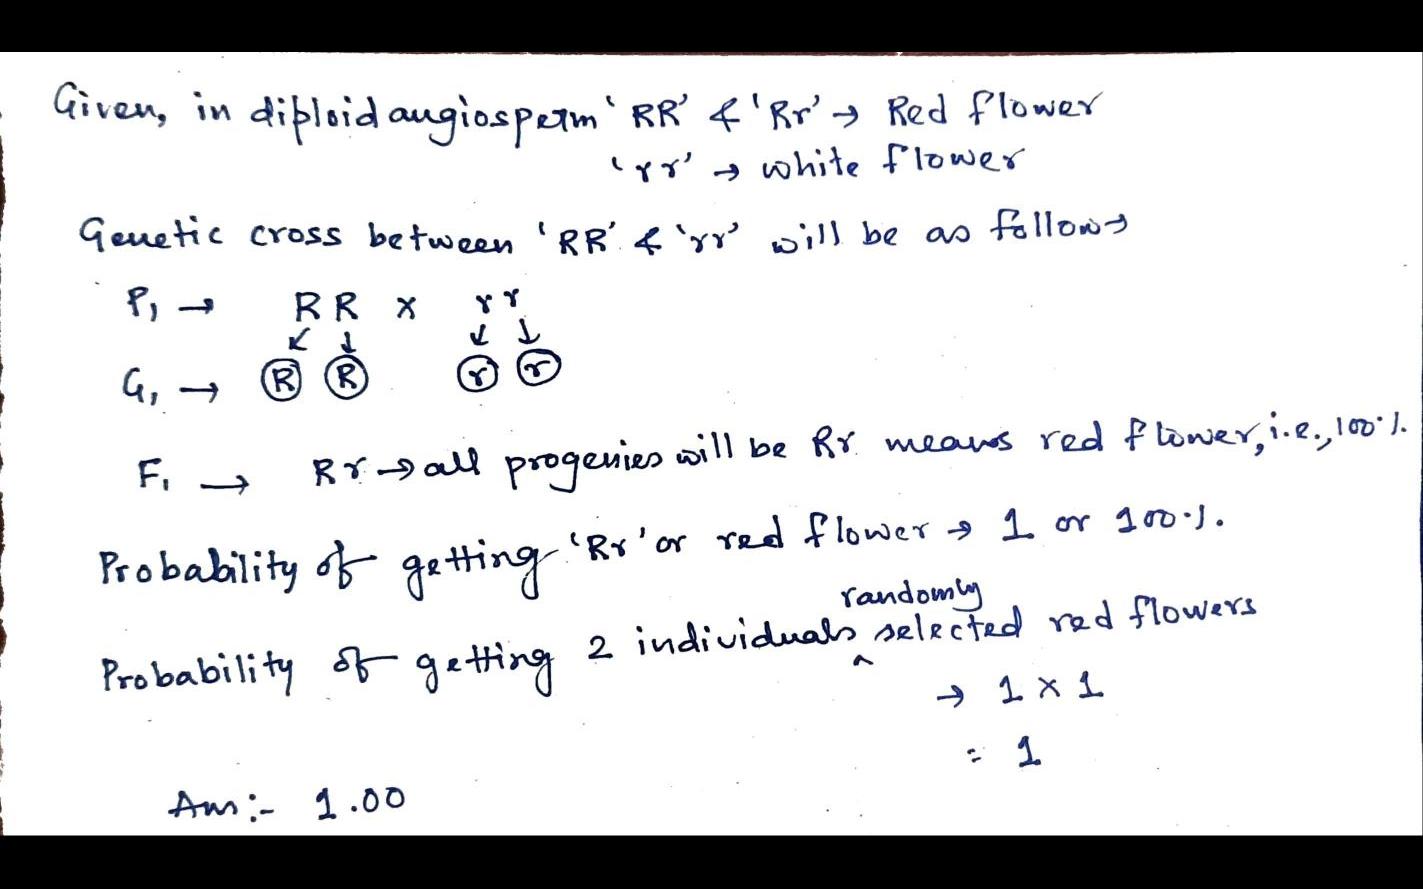 Given, in diploid angiosperm 'RR' & 'Rr' → Red flower
'rr' → white flower
Genetic cross between 'RR' & 'rr' will be as follow→
P₁ → RR x rr
G₁ → R R r r
F₁ → Rr → all progenies will be Rr means red flower, i.e., 100%.
Probability of getting 'Rr' or red flower → 1 or 100%.
Probability of getting 2 individuals randomly selected red flowers
→ 1 x 1
= 1
Ans:- 1.00